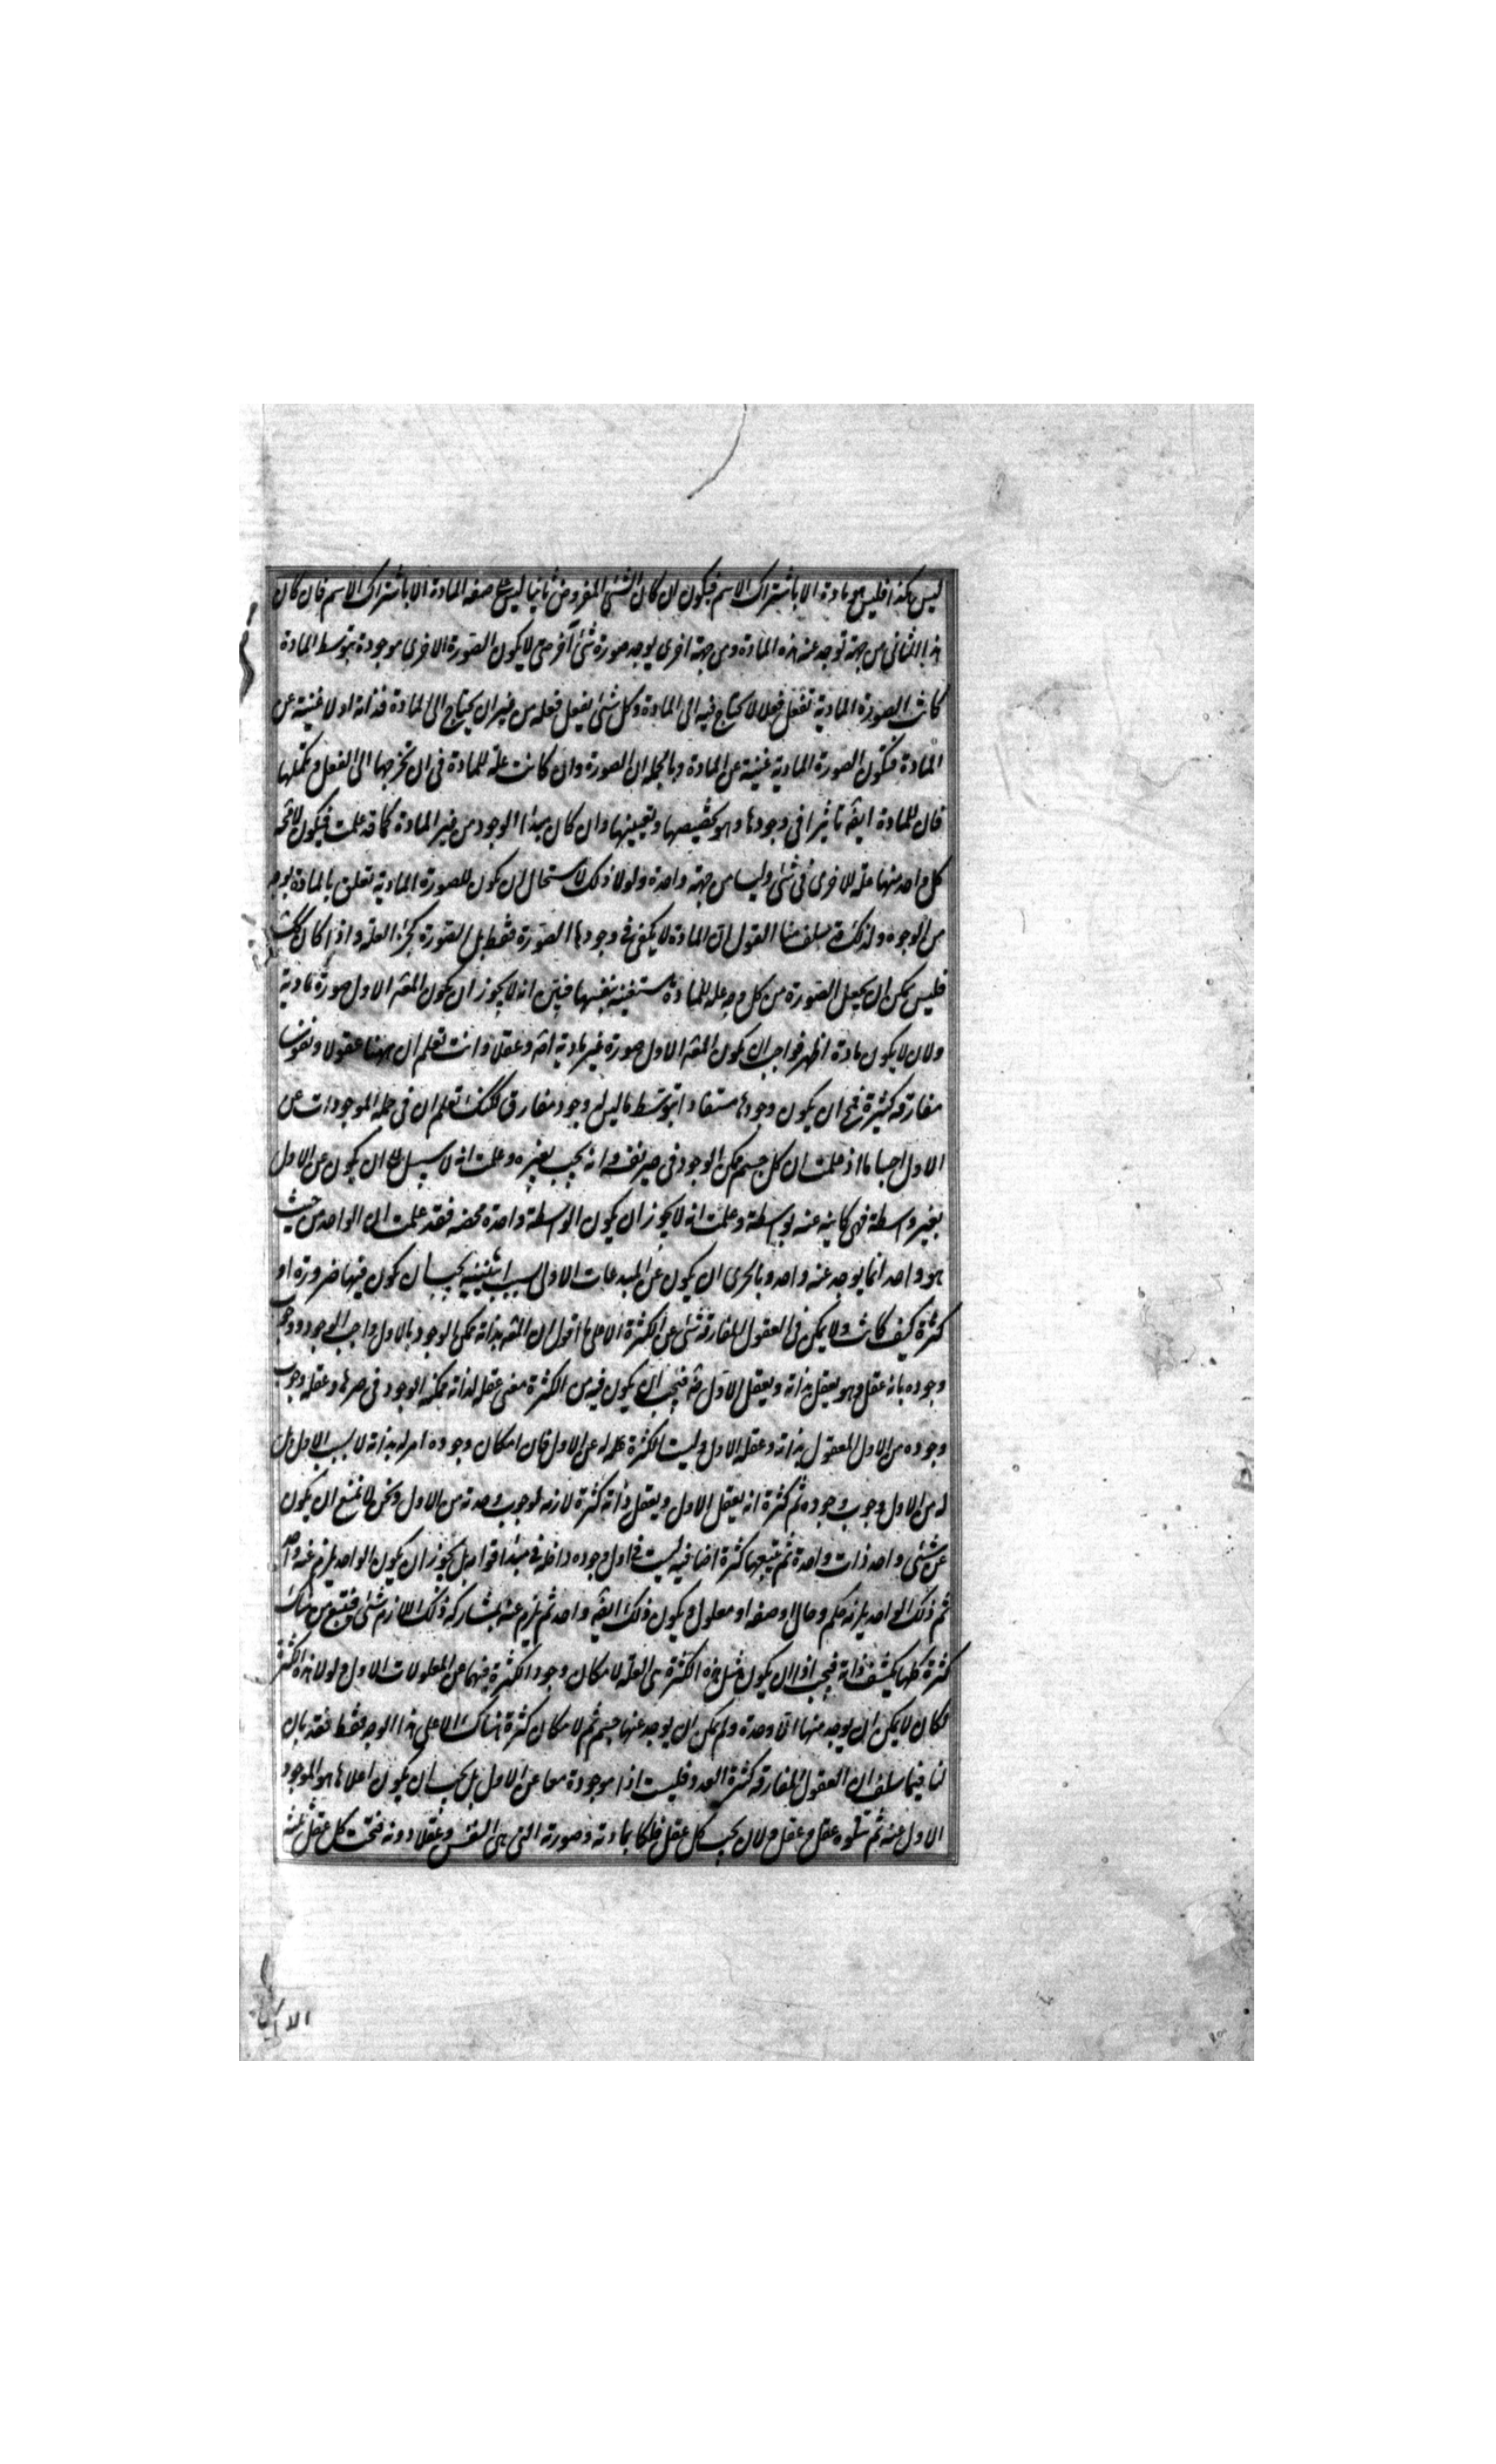 ليس هكذا فليس هو مادة الا باشتراك الاسم فيكون ان كان الشئ المفروض ثانيا ليس على صفه المادة الا باشتراك الاسم فان كان
هذا الثانى من جهة توجد عنه هذه المادة ومن جهة اخرى يوجد صورة شئ آخر حتى لا يكون الصورة الاخرى موجودة بتوسط المادة
كانت الصورة المادية تفعل فعلا لا يحتاج فيه الى المادة وكل شئ يفعل فعله من غير ان يحتاج الى المادة فذاته اولا غنية عن
المادة فتكون الصورة المادية غنية عن المادة وبالجمله ان الصورة وان كانت علة للمادة فى ان تخرجها الى الفعل وتكملها
فان للمادة ايضً تاثيرا فى وجودها وهو تخصيصها وتعيينها وان كان مبدا الوجود من غير المادة كما قد علمت فيكون لا محة
كل واحد منها علة للاخرى فى شئ وليسا من جهة واحدة ولولا ذلك لاستحال ان يكون للصورة المادية تعلق بالمادة بوجه
من الوجوه ولذلك قد سلف منا القول ان المادة لا يكفى فى وجودها الصورة فقط بل الصورة كجزء العلة واذا كان كك
فليس يمكن ان يجعل الصورة من كل وجه علة للمادة مستغنيه بنفسها فبين انه لا يجوز ان يكون المعه الاول صورة مادية
ولان لا يكون مادة اظهر فواجب ان يكون المعه الاول صورة غير مادية اصه وعقلا وانت تعلم ان ههنا عقولا ونفوسا
مفارقه كثيرة فمح ان يكون وجودها مستفادا بتوسط ما ليس له وجود مفارق لكنك تعلم ان فى جملة الموجودات عن
الاول اجساما اذ علمت ان كل جسم ممكن الوجود فى حيز نفسه وانه يجب بغيره وعلمت انه لا سبيل الى ان يكون عن الاول
بغير واسطة فهى كاينه عنه بواسطة وعلمت انه لا يجوز ان يكون الواسطة واحدة محضه فقد علمت ان الواحد من حيث
هو واحد انما يوجد عنه واحد وبالحرى ان يكون عن المبدعات الاولى بسبب اثنينية يجب ان يكون فيها ضرورة او
كثرة كيف كانت ولا يمكن فى العقول المفارقة شئ من الكثرة الا على ما اقول ان المعه بذاته ممكن الوجود بالاول واجب الوجود ووجوب
وجوده بانه عقل وهو يعقل بذاته ويعقل الاول ضه فيجب ان يكون فيه من الكثرة معنى عقله لذاته ممكنه الوجود فى حيزها وعقله وجوب
وجوده من الاول المعقول بذاته وعقله الاول وليست الكثرة له عن الاول فان امكان وجوده امر له بذاته لا بسبب الاول بل
له من الاول وجوب وجوده ثم كثرة انه يعقل الاول ويعقل ذاته كثرة لازمة لوجوب وحدته من الاول ونحن لا نمنع ان يكون
عن شئ واحد ذات واحدة ثم يتبعها كثرة اضافيه ليست فى اول وجوده داخله فى مبدا قوامه بل يجوز ان يكون الواحد يلزم عنه واحد
ثم ذلك الواحد يلزمه حكم وحال او صفه او معلول ويكون ذلك ايضً واحد ثم يلزم عنه بمشاركه ذلك اللازم شئ فيتبع من هناك
كثرة كلها يلزم ذاته فيجب اذا ان يكون مثل هذه الكثرة هى العلة لامكان وجود الكثرة فيها عن المعلولات الاول ولولا هذه الكثرة
لكان لا يمكن ان يوجد منها الا وحدة ولم يكن ان يوجد عنها جسم ثم لا مكان كثرة هناك الا على هذا الوجه فقط فقد بان
لنا فيما سلف ان العقول المفارقه كثيرة العدد فليست اذا موجودة معا عن الاول بل يجب ان يكون اعلاها هو الموجود
الاول عنه ثم يتلوه عقل وعقل ولان يجب كل عقل فلكا بمادته وصورته التى هى النفس وعقلا دونه فتحت كل عقل ثلثه